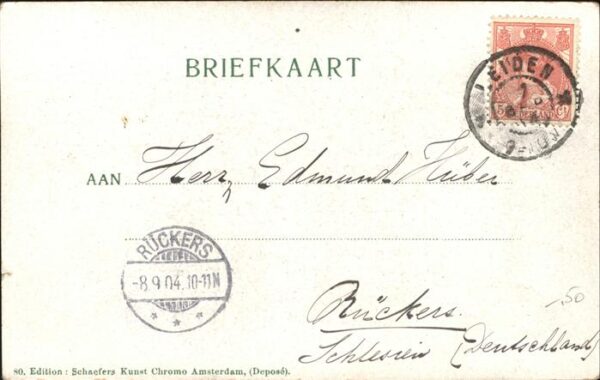 BRIEFKAART
LEIDEN
AAN Herrn Edmund Hüber
RÜCKERS
-8.9.04.10-11N
* * *
Rückers.
Schlesien (Deutschland)
-.50
80. Edition : Schaefers Kunst Chromo Amsterdam, (Deposé).